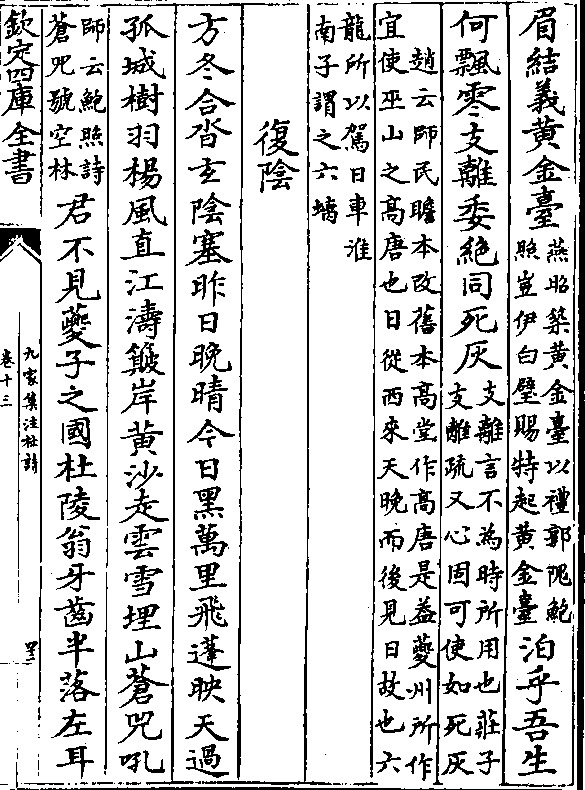 眉結義黃金臺燕昭築黃金臺以禮郭隗鮑
照豈伊白璧賜特起黃金臺泊乎吾生
何飄零支離委絶同死灰支離言不為時所用也莊子
支離疏又心固可使如死灰
趙云師民瞻本改舊本高堂作高唐是蓋夔州所作
宜使巫山之高唐也日從西來天晚而後見日故也六
龍所以駕日車淮
南子謂之六螭
復陰
方冬合沓玄陰塞昨日晚晴今日黑萬里飛蓬映天過
孤城樹羽楊風直江濤簸岸黃沙走雲雪埋山蒼兕吼
師云鮑照詩
蒼兕號空林君不見夔子之國杜陵翁牙齒半落左耳
欽定四庫全書
九家集注杜詩
卷十三